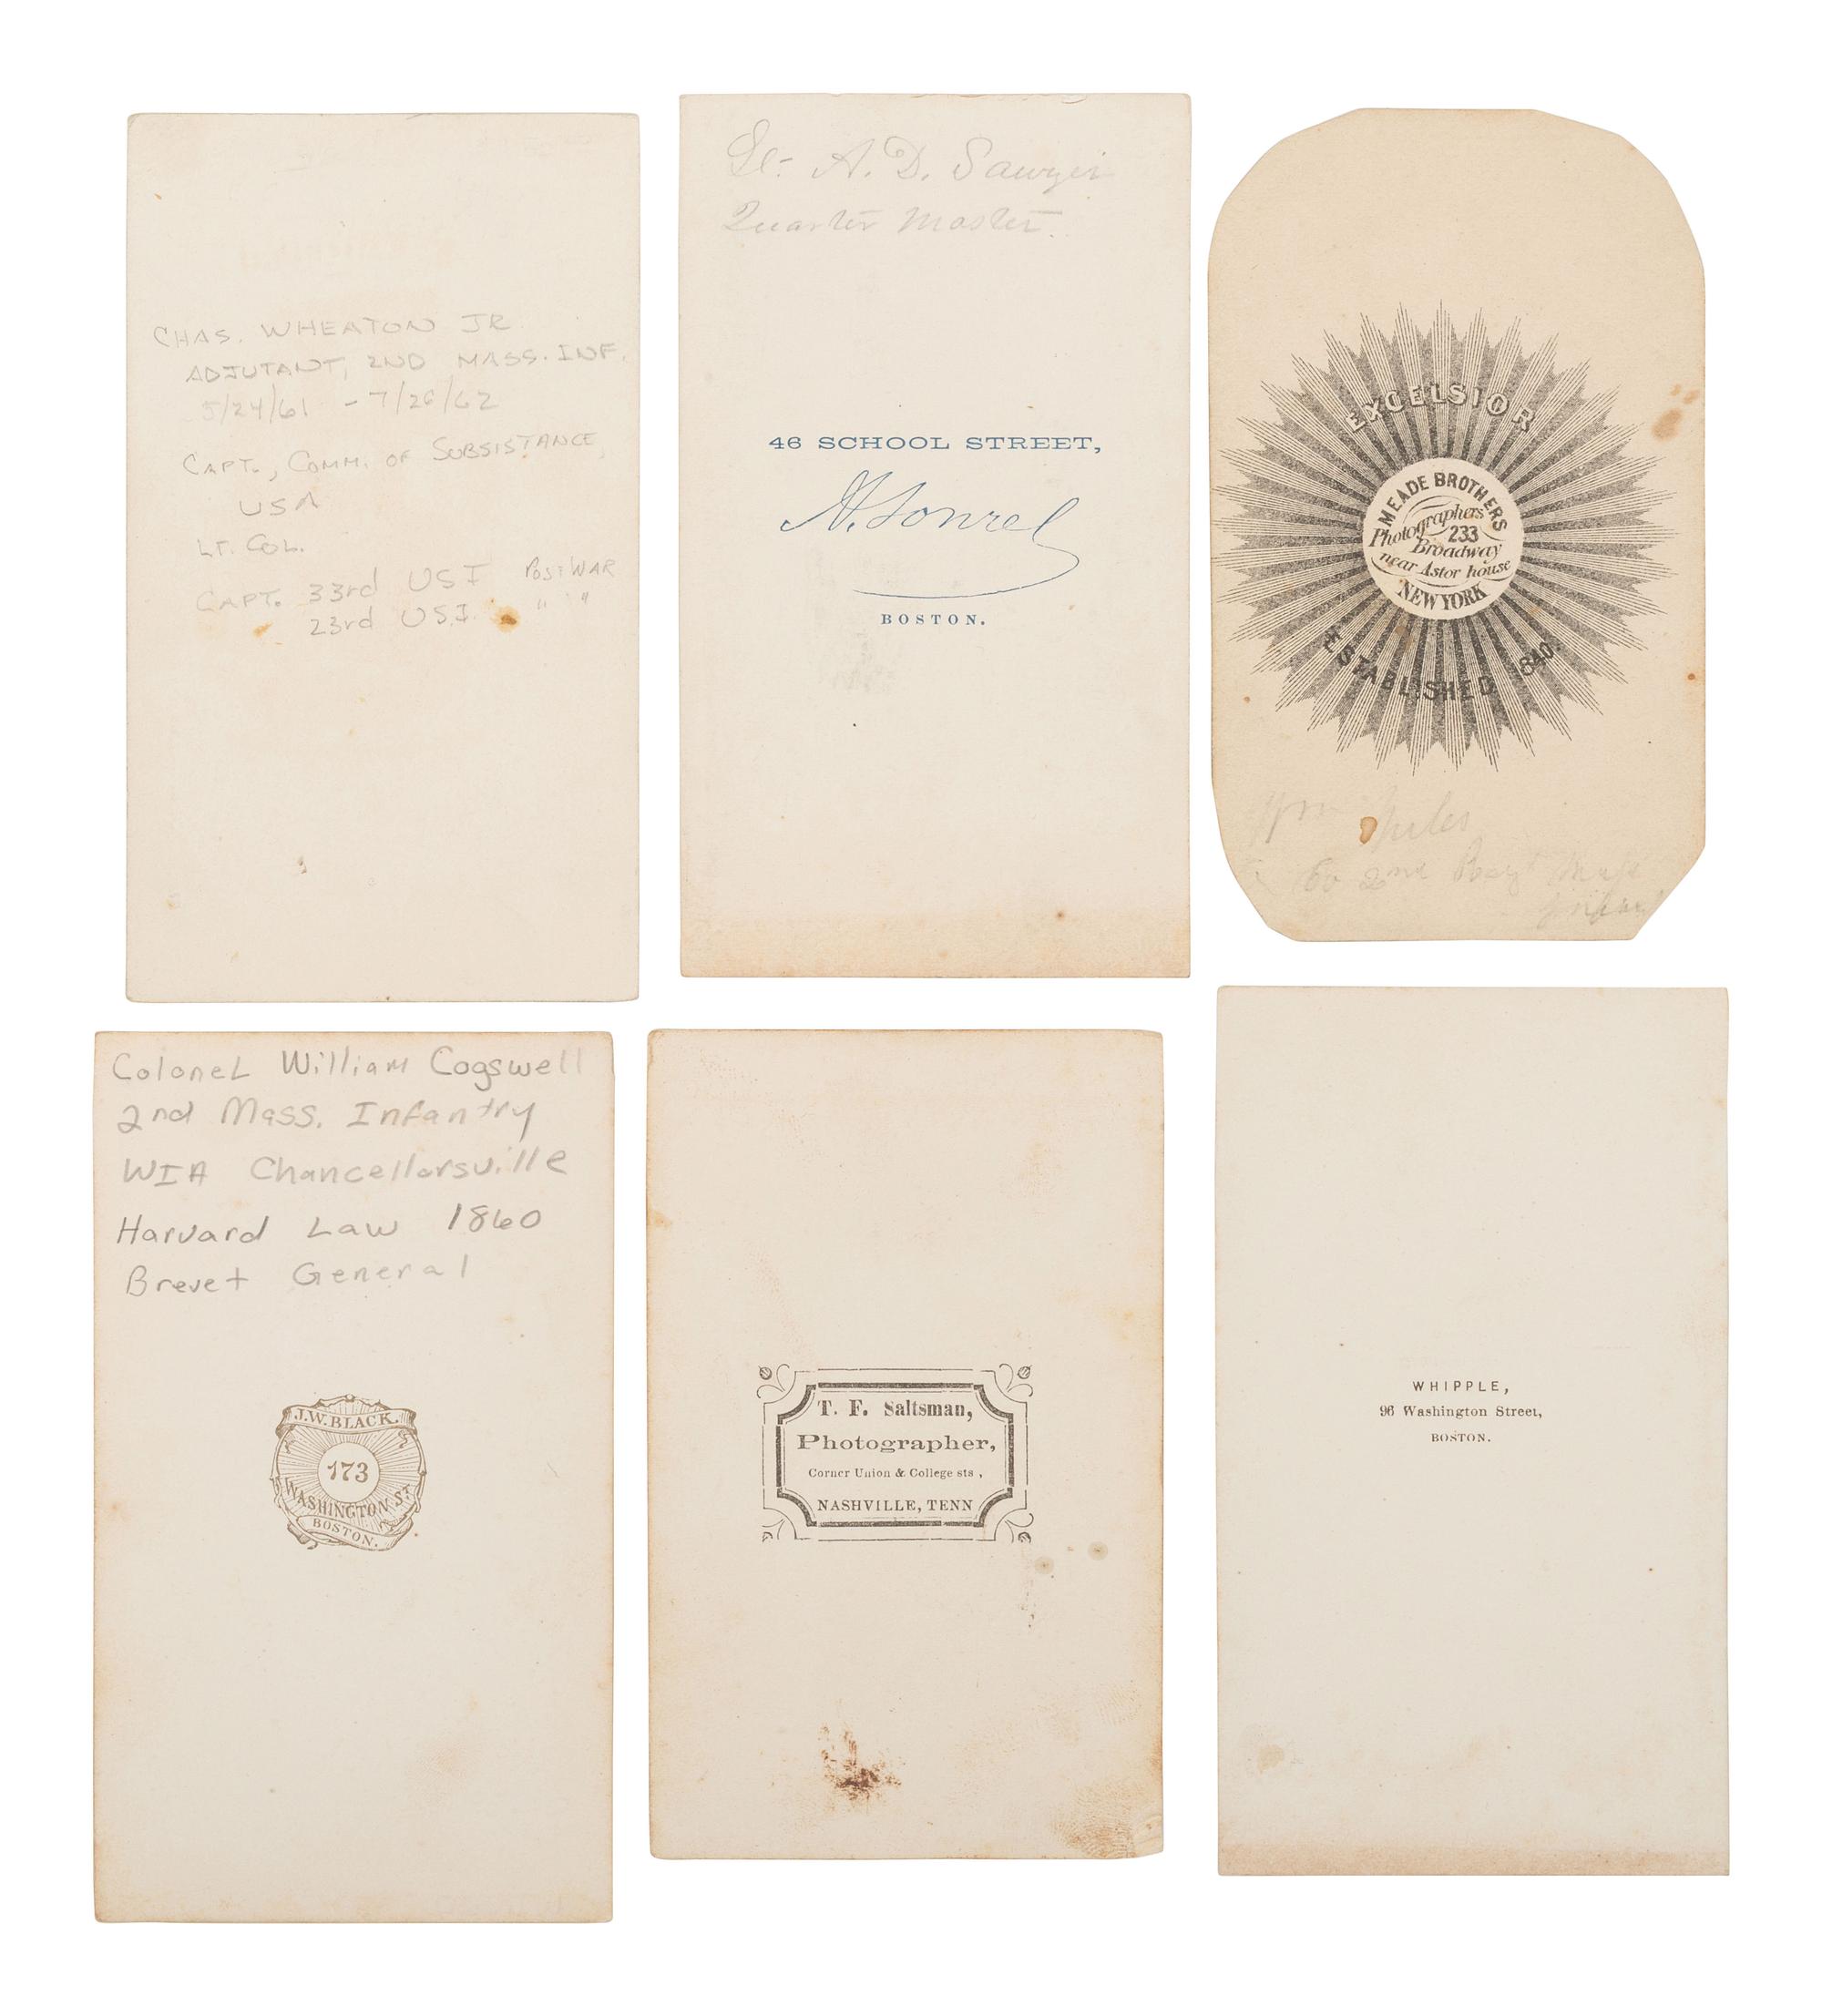 CHAS. WHEATON JR
ADJUTANT, 2ND MASS. INF.
5/24/61 - 7/26/62
CAPT., COMM. OF SUBSISTANCE,
USA
LT. COL.
CAPT. 33rd USI POSTWAR
23rd U.S.I. " "
Lt. A. D. Sawyer
Quarter Master.
46 SCHOOL STREET,
A. Sonrel
BOSTON.
EXCELSIOR
MEADE BROTHERS
Photographers
233
Broadway
near Astor house
NEW YORK
ESTABLISHED 1840.
Wm
2nd Regt Mass
Colonel William Cogswell
2nd Mass. Infantry
WIA Chancellorsville
Harvard Law 1860
Brevet General
J.W. BLACK.
173
WASHINGTON ST.
BOSTON.
T. F. Saltsman,
Photographer,
Corner Union & College sts,
NASHVILLE, TENN
WHIPPLE,
96 Washington Street,
BOSTON.